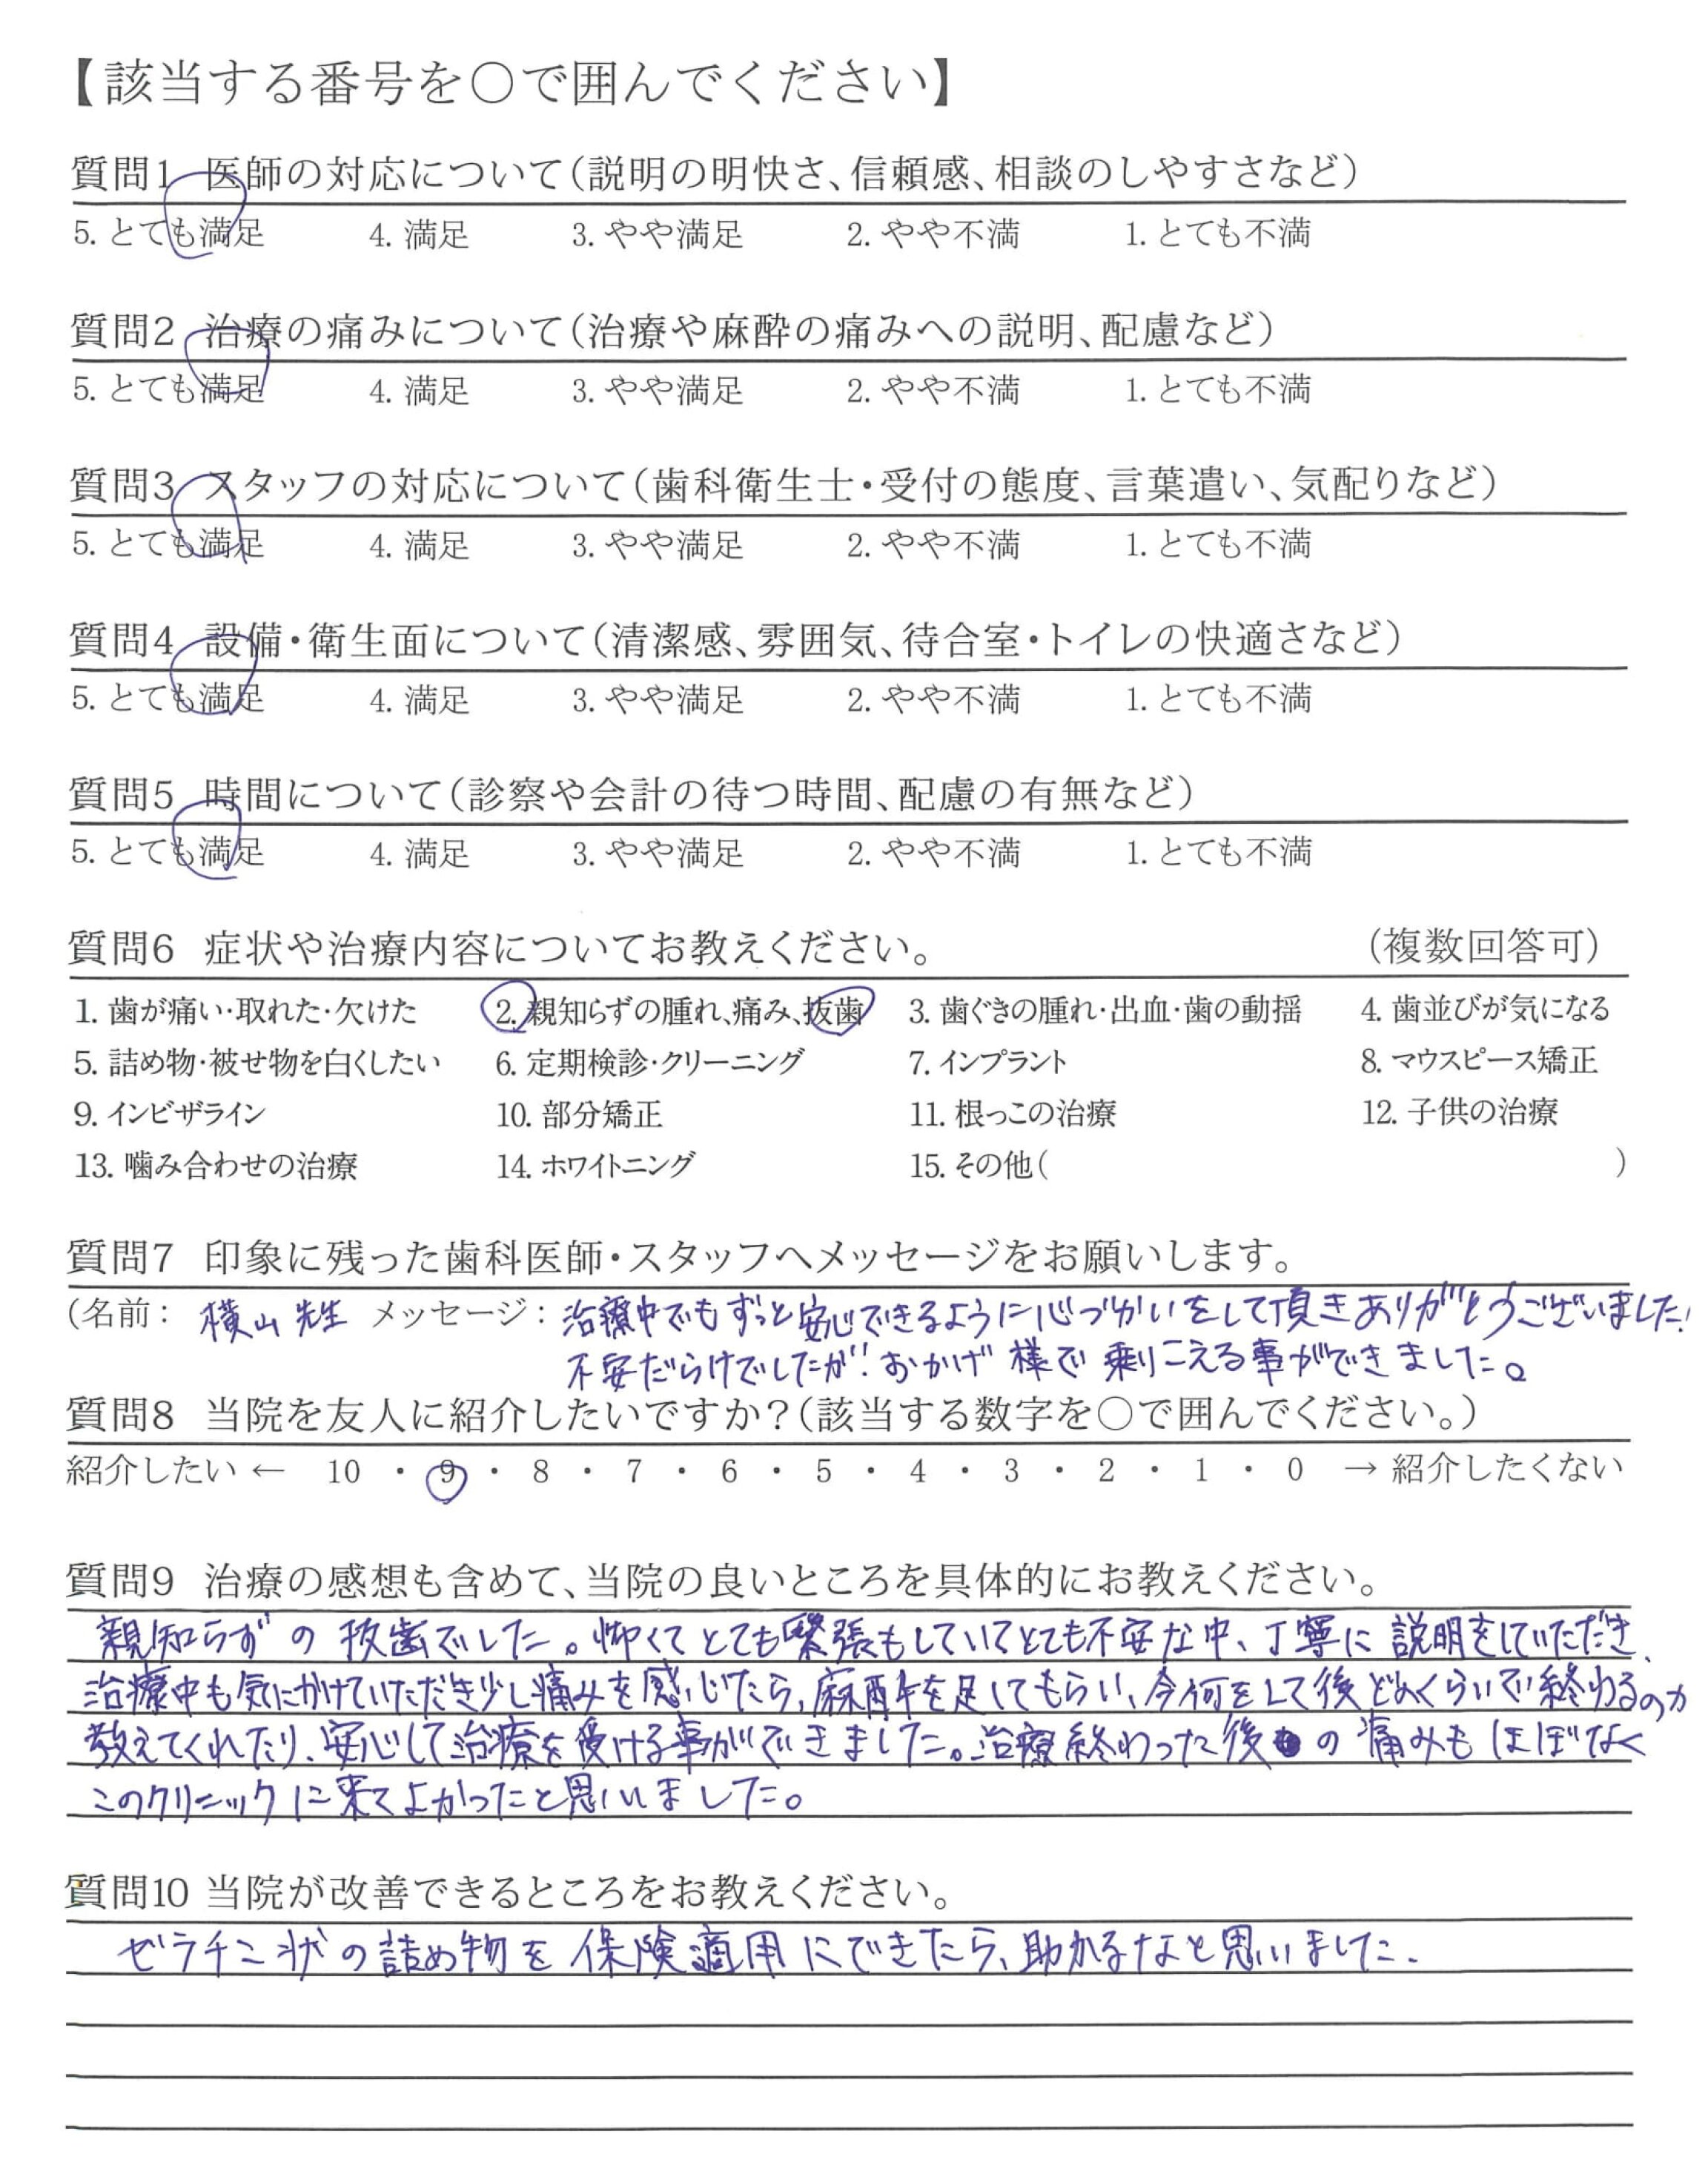 【該当する番号を○で囲んでください】
質問1 医師の対応について(説明の明快さ、信頼感、相談のしやすさなど)
5. とても満足 4. 満足 3. やや満足 2. やや不満 1. とても不満
質問2 治療の痛みについて(治療や麻酔の痛みへの説明、配慮など)
5. とても満足 4. 満足 3. やや満足 2. やや不満 1. とても不満
質問3 スタッフの対応について(歯科衛生士・受付の態度、言葉遣い、気配りなど)
5. とても満足 4. 満足 3. やや満足 2. やや不満 1. とても不満
質問4 設備・衛生面について(清潔感、雰囲気、待合室・トイレの快適さなど)
5. とても満足 4. 満足 3. やや満足 2. やや不満 1. とても不満
質問5 時間について(診察や会計の待つ時間、配慮の有無など)
5. とても満足 4. 満足 3. やや満足 2. やや不満 1. とても不満
質問6 症状や治療内容についてお教えください。 (複数回答可)
1. 歯が痛い・取れた・欠けた 2. 親知らずの腫れ、痛み、抜歯 3. 歯ぐきの腫れ・出血・歯の動揺 4. 歯並びが気になる
5. 詰め物・被せ物を白くしたい 6. 定期検診・クリーニング 7. インプラント 8. マウスピース矯正
9. インビザライン 10. 部分矯正 11. 根っこの治療 12. 子供の治療
13. 噛み合わせの治療 14. ホワイトニング 15. その他( )
質問7 印象に残った歯科医師・スタッフへメッセージをお願いします。
(名前: 横山先生 メッセージ: 治療中でもずっと安心できるように心づかいをして頂きありがとうございました!
不安だらけでしたが!おかげ様で乗りこえる事ができました。
質問8 当院を友人に紹介したいですか?(該当する数字を○で囲んでください。)
紹介したい ← 10 ・ 9 ・ 8 ・ 7 ・ 6 ・ 5 ・ 4 ・ 3 ・ 2 ・ 1 ・ 0 → 紹介したくない
質問9 治療の感想も含めて、当院の良いところを具体的にお教えください。
親知らずの抜歯でした。怖くてとても緊張もしていてとても不安な中、丁寧に説明をしていただき、
治療中も気にかけていただき少し痛みを感じたら、麻酔を足してもらい、今何をして後どのくらいで終わるのか
教えてくれたり、安心して治療を受ける事ができました。治療終わった後の痛みもほぼなく
このクリニックに来てよかったと思いました。
質問10 当院が改善できるところをお教えください。
ゼラチン状の詰め物を保険適用にできたら、助かるなと思いました.